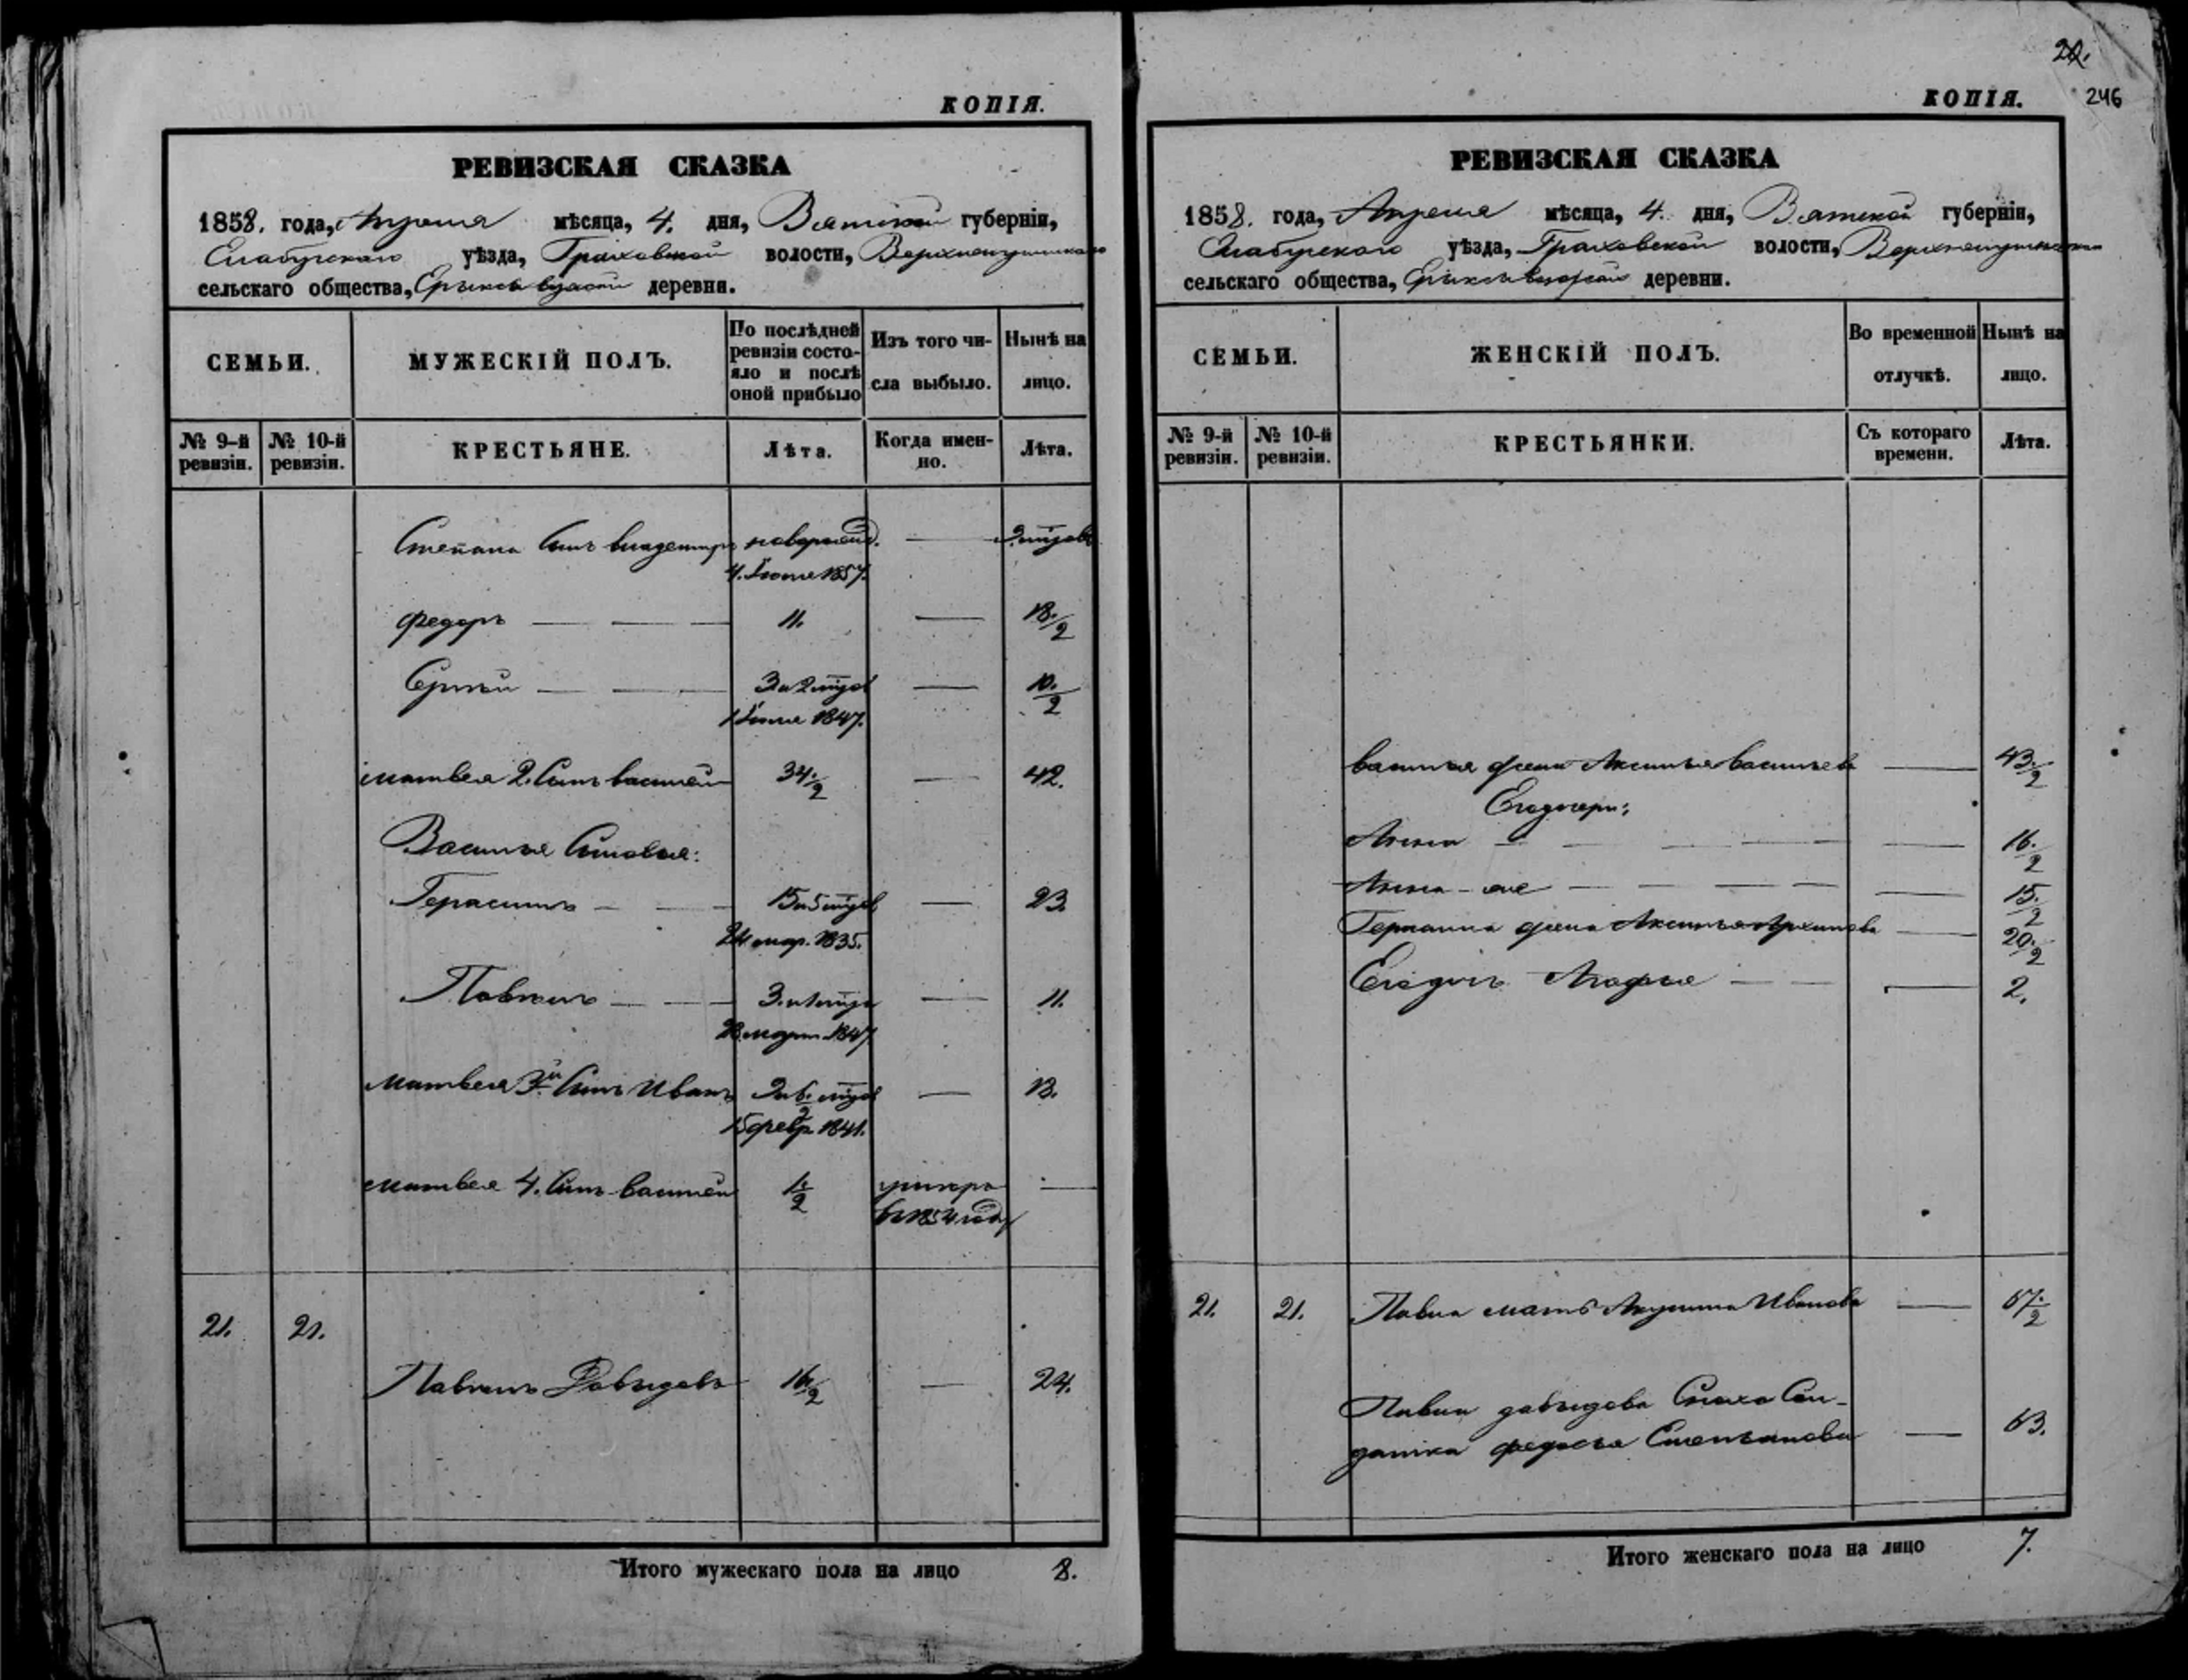 КОПІЯ.
РЕВИЗСКАЯ СКАЗКА
1858. года, Апреля мѣсяца, 4. дня, Вятской губерніи,
Елабугскаго уѣзда, Граховской волости,
сельскаго общества, деревни.
СЕМЬИ.
МУЖЕСКІЙ ПОЛЪ.
По послѣдней ревизіи состо-
яло и послѣ оной прибыло
Изъ того чи-
сла выбыло.
Нынѣ на
лицо.
№ 9-й ревизіи.
№ 10-й ревизіи.
КРЕСТЬЯНЕ.
Лѣта.
Когда имен-
но.
Лѣта.
Степана Сынъ Владимиръ новорожд.
4. Іюля 1857.
Федоръ 11. 18./2
Сергѣй 3 и 2
1 1847. 10./2
Матвея 2. Сынъ Василей 34./2 42.
Василья Сыновья:
Герасимъ 15 и 5 23.
24 мар. 1835.
Павелъ 3. и 1 11.
1847
Матвея 3й Сынъ Иванъ 13.
15 февр. 1841.
Матвея 4. Сынъ Василей 1./2 умеръ
въ 1854 году
21. 21.
Павелъ Давыдовъ 16./2 24.
Итого мужескаго пола на лицо 8.
22.
246
КОПІЯ.
РЕВИЗСКАЯ СКАЗКА
1858. года, Апреля мѣсяца, 4. дня, Вятской губерніи,
Елабугскаго уѣзда, Граховской волости,
сельскаго общества, деревни.
СЕМЬИ.
ЖЕНСКІЙ ПОЛЪ.
Во временной
отлучкѣ.
Нынѣ на
лицо.
№ 9-й ревизіи.
№ 10-й ревизіи.
КРЕСТЬЯНКИ.
Съ котораго
времени.
Лѣта.
Василья жена Аксинья Васильева 43./2
Его дочери:
Анна 16./2
Анна-же 15./2
Герасима жена Аксинья Архипова 20./2
Его дочь Агафья 2.
21. 21. Павла мать Акулина Иванова 67./2
Павла Давыдова Сноха Сол-
датка Федосья Степанова 63.
Итого женскаго пола на лицо 7.